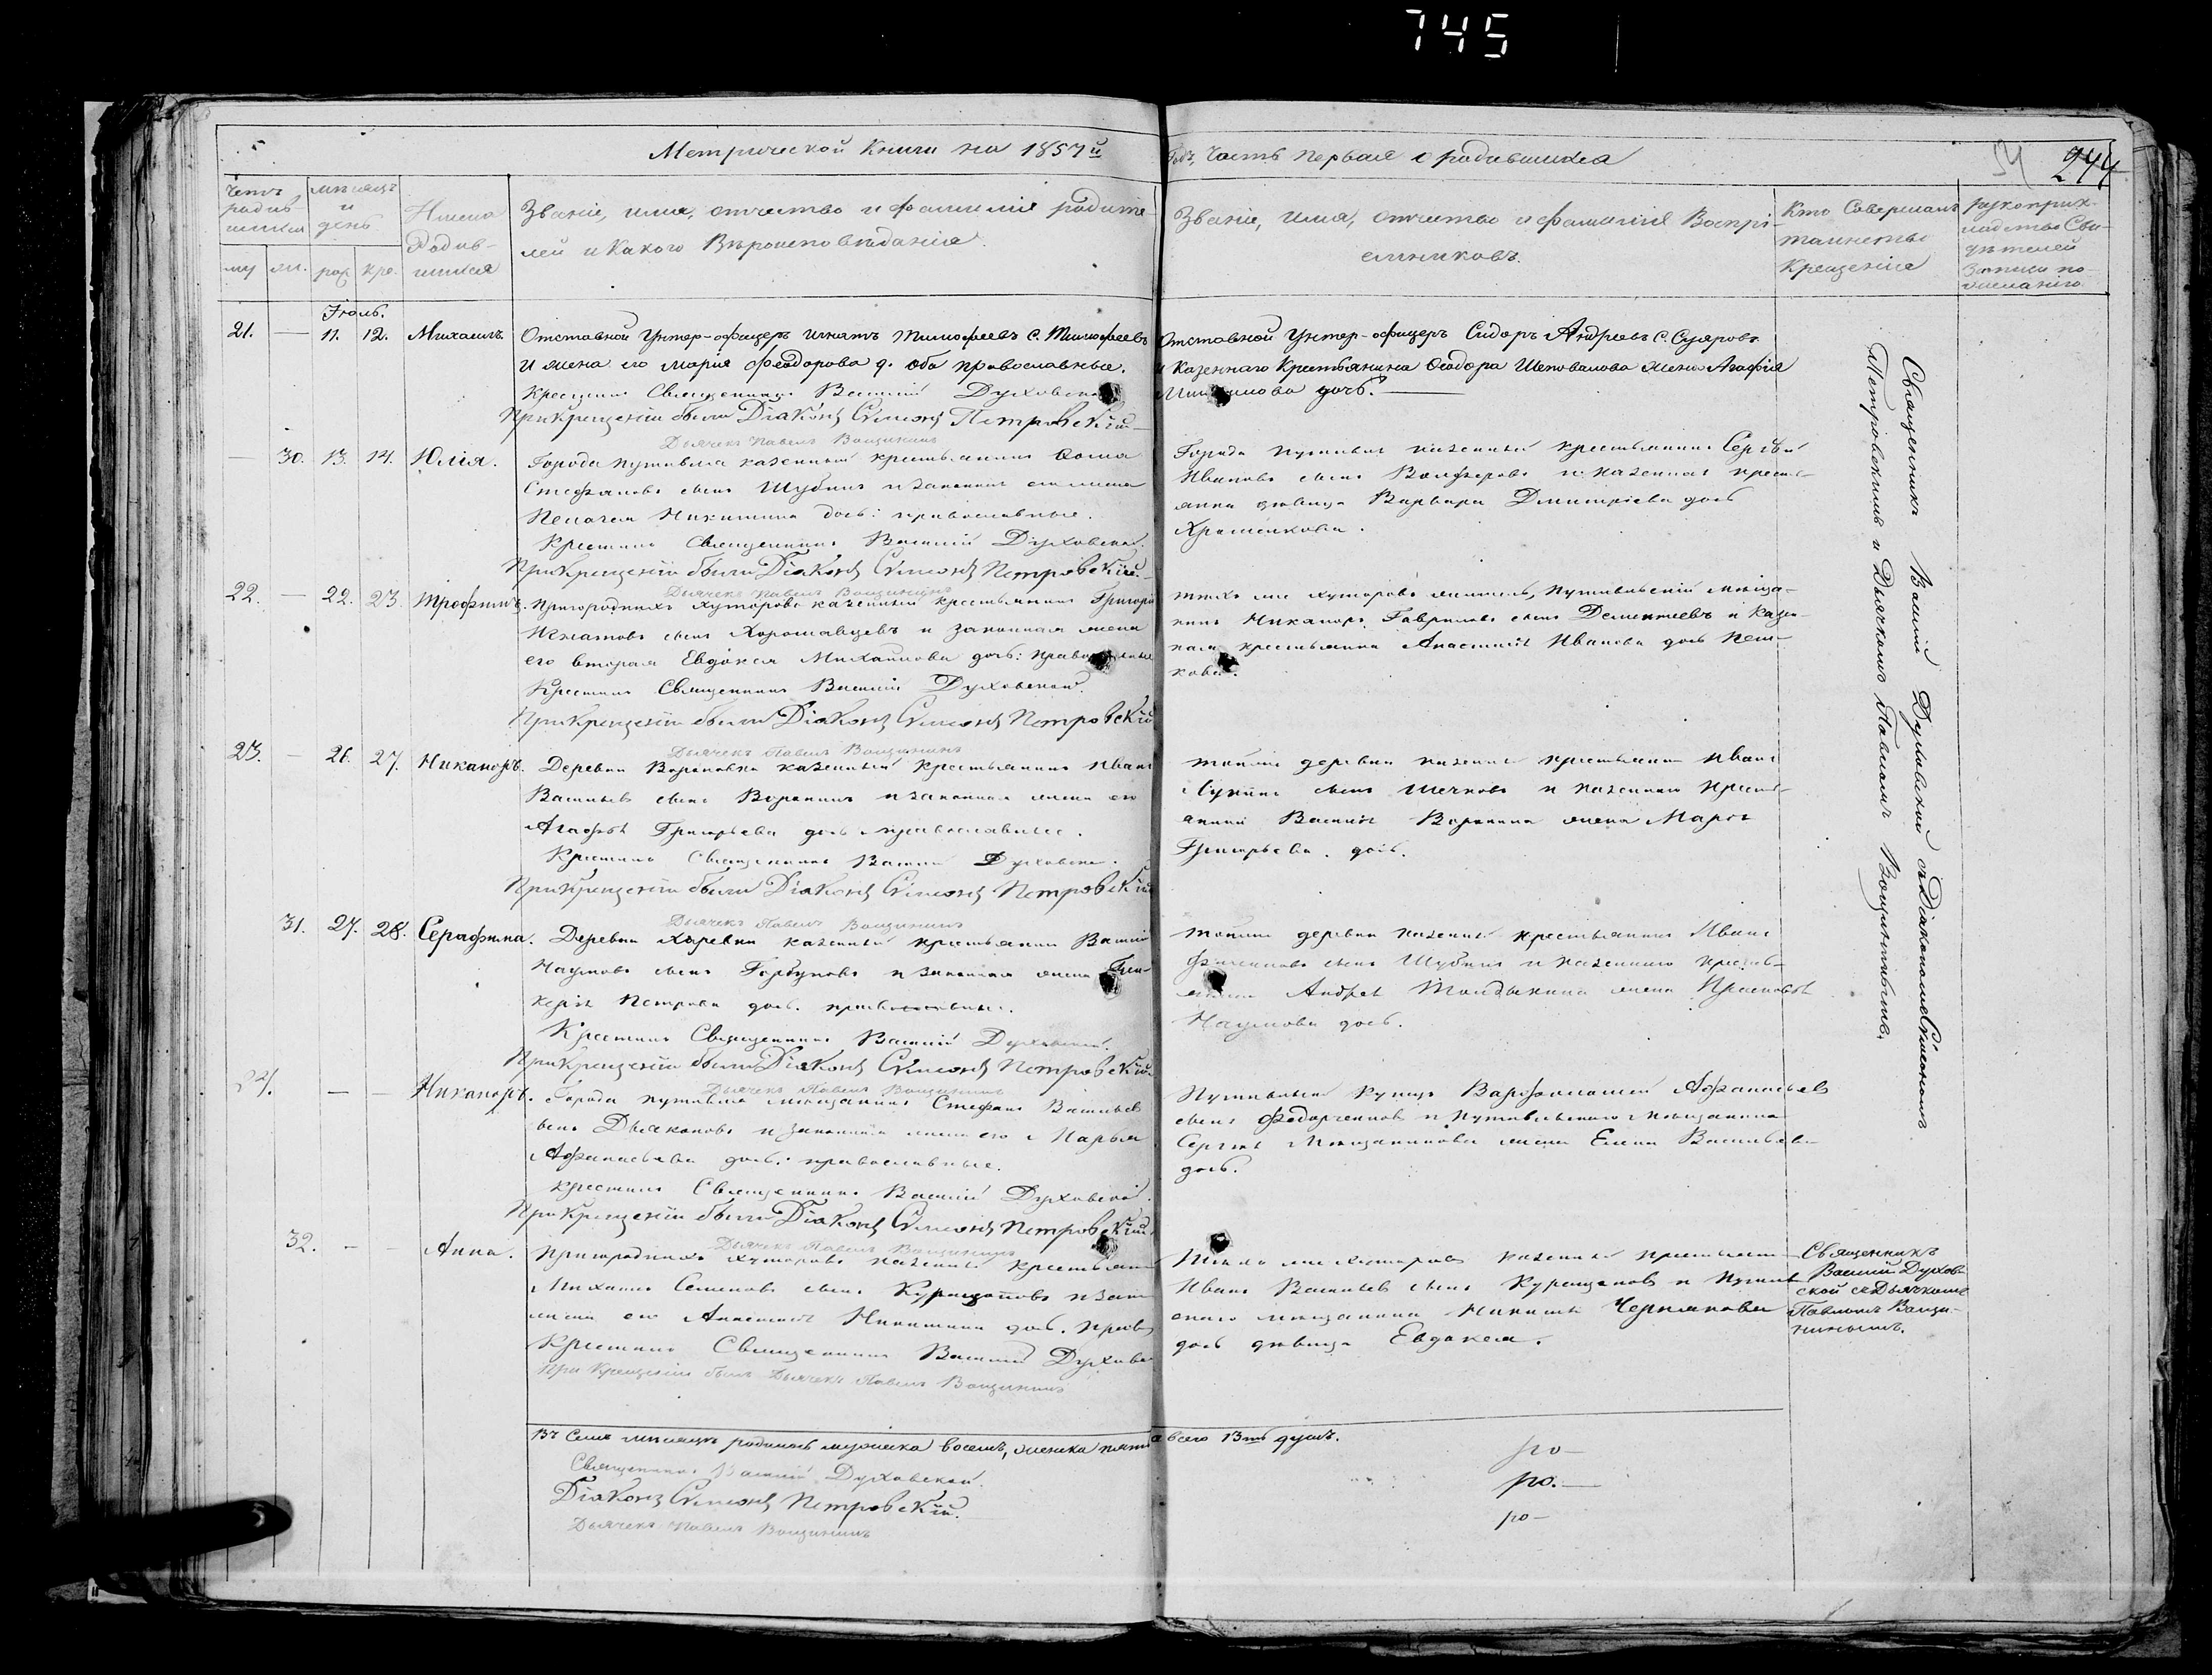 745
Метрической Книги на 1857й Годъ, Часть первая о родившихся
244
Счетъ родив-шихся
мѣсяцъ и день
Имена Родив-шихся
Званіе, имя, отчество и фамилія родите-
лей и Какого Вѣроисповѣданія.
Званіе, имя, отчество и фамилія Воспрі-
емниковъ.
Кто Совершалъ
таинство
Крещенія
рукоприк-
ладство Сви-
дѣтелей
записи по
желанію.
му. же. рож. кре.
Іюль.
21. — 11. 12. Михаилъ.
Отставной Унтер-офицеръ Игнатъ Тимофеевъ С. Тимофеевъ
и жена его Марія Феодорова д. оба православные.
Крестилъ Священникъ Василій Духовской
При Крещеніи были Діаконъ Сѵмеонъ Петровскій
Дьячекъ Павелъ Вощининъ
Отставной Унтер-офицеръ Сидоръ Андреевъ С.
и Казеннаго Крестьянина Ѳеодора Шаповалова жена Агафія
дочь.
— 30. 13. 14. Юлія.
Города Путивля казенный крестьянинъ Ѳома
Стефановъ сынъ Шубинъ и законная его жена
Пелагея Никитина дочь: православные.
Крестилъ Священникъ Василій Духовской.
При Крещеніи были Діаконъ Сѵмеонъ Петровскій.
Дьячекъ Павелъ Вощининъ
Города Путивля казенный крестьянинъ Сергѣй
Ивановъ сынъ и казенная кресть-
янка дѣвица Варвара Дмитріева дочь
22. — 22. 23. Трофимъ.
Пригородныхъ хуторовъ казенный крестьянинъ Григорій
Игнатовъ сынъ и законная жена
его вторая Евдокея Михайлова дочь: православные
Крестилъ Священникъ Василій Духовской.
При Крещеніи были Діаконъ Сѵмеонъ Петровскій
Дьячекъ Павелъ Вощининъ
тѣхъ же хуторовъ житель, Путивльскій мѣща-
нинъ Никаноръ Гавриловъ сынъ Дементьевъ и казен-
ная крестьянка Анастасія Иванова дочь
23. — 26. 27. Никаноръ.
Деревни Вороновки казенный крестьянинъ Иванъ
Васильевъ сынъ Воронинъ и законная жена его
Агафія Григорьева дочь православные.
Крестилъ Священникъ Василій Духовской.
При Крещеніи были Діаконъ Сѵмеонъ Петровскій
Дьячекъ Павелъ Вощининъ
тойже деревни казенный крестьянинъ Иванъ
сынъ и казеннаго крест-
янина Василія Воронина жена
Григорьева дочь.
31. 27. 28. Серафима.
Деревни казенный крестьянинъ Василій
Наумовъ сынъ Горбуновъ и законная жена Гли-
керія Петрова дочь. православные.
Крестилъ Священникъ Василій Духовской.
При Крещеніи были Діаконъ Сѵмеонъ Петровскій.
Дьячекъ Павелъ Вощининъ
тойже деревни казенный крестьянинъ Иванъ
сынъ Шубинъ и казеннаго кресть-
янина Андрея жена
Наумова дочь.
24. — — Никаноръ.
Города Путивля мѣщанинъ Стефанъ Васильевъ
сынъ Дьяконовъ и законная жена его Марья
Афанасьева дочь: православные.
Крестилъ Священникъ Василій Духовской.
При Крещеніи были Діаконъ Сѵмеонъ Петровскій.
Дьячекъ Павелъ Вощининъ
Путивльскій Купецъ Варфоломей Афанасьевъ
сынъ Федорченковъ и Путивльскаго мѣщанина
Сергѣя жена Елена Васильева
дочь.
32. — — Анна.
Пригородныхъ Хуторовъ казенный крестьянинъ
Михаилъ Семеновъ сынъ и зак
жена его Анастасія Никитина дочь. прав
Крестилъ Священникъ Василій Духовс
При Крещеніи былъ Дьячекъ Павелъ Вощининъ
Тѣхъ же Хуторовъ казенный крестьянинъ
Иванъ Васильевъ сынъ и Путивль
скаго мѣщанина Никиты Чернякова
дочь дѣвица Евдокея.
Священникъ
Василій Духов-
ской съ Дьячкомъ
Павломъ Вощи-
нинымъ.
Священникъ Василій Духовской съ Діакономъ Сѵмеономъ
Петровскимъ и Дьячкомъ Павломъ Вощининымъ.
Въ Семъ мѣсяцѣ родилось мужеска восемь, женска пять а всего 13ть душъ.
Священникъ Василій Духовской.
Діаконъ Сѵмеонъ Петровскій.
Дьячекъ Павелъ Вощининъ